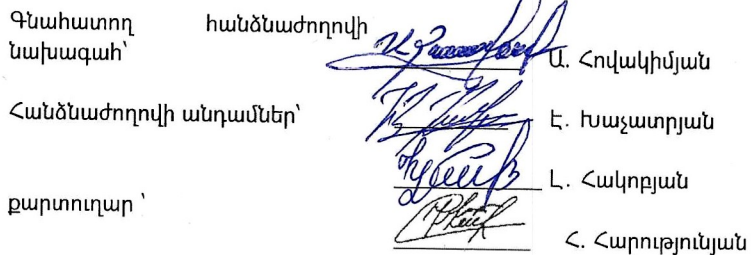 Գնահատող հանձնաժողովի
նախագահ՝ Ա. Հովակիմյան
Հանձնաժողովի անդամներ՝ Է. Խաչատրյան
Լ. Հակոբյան
քարտուղար ՝
Հ. Հարությունյան